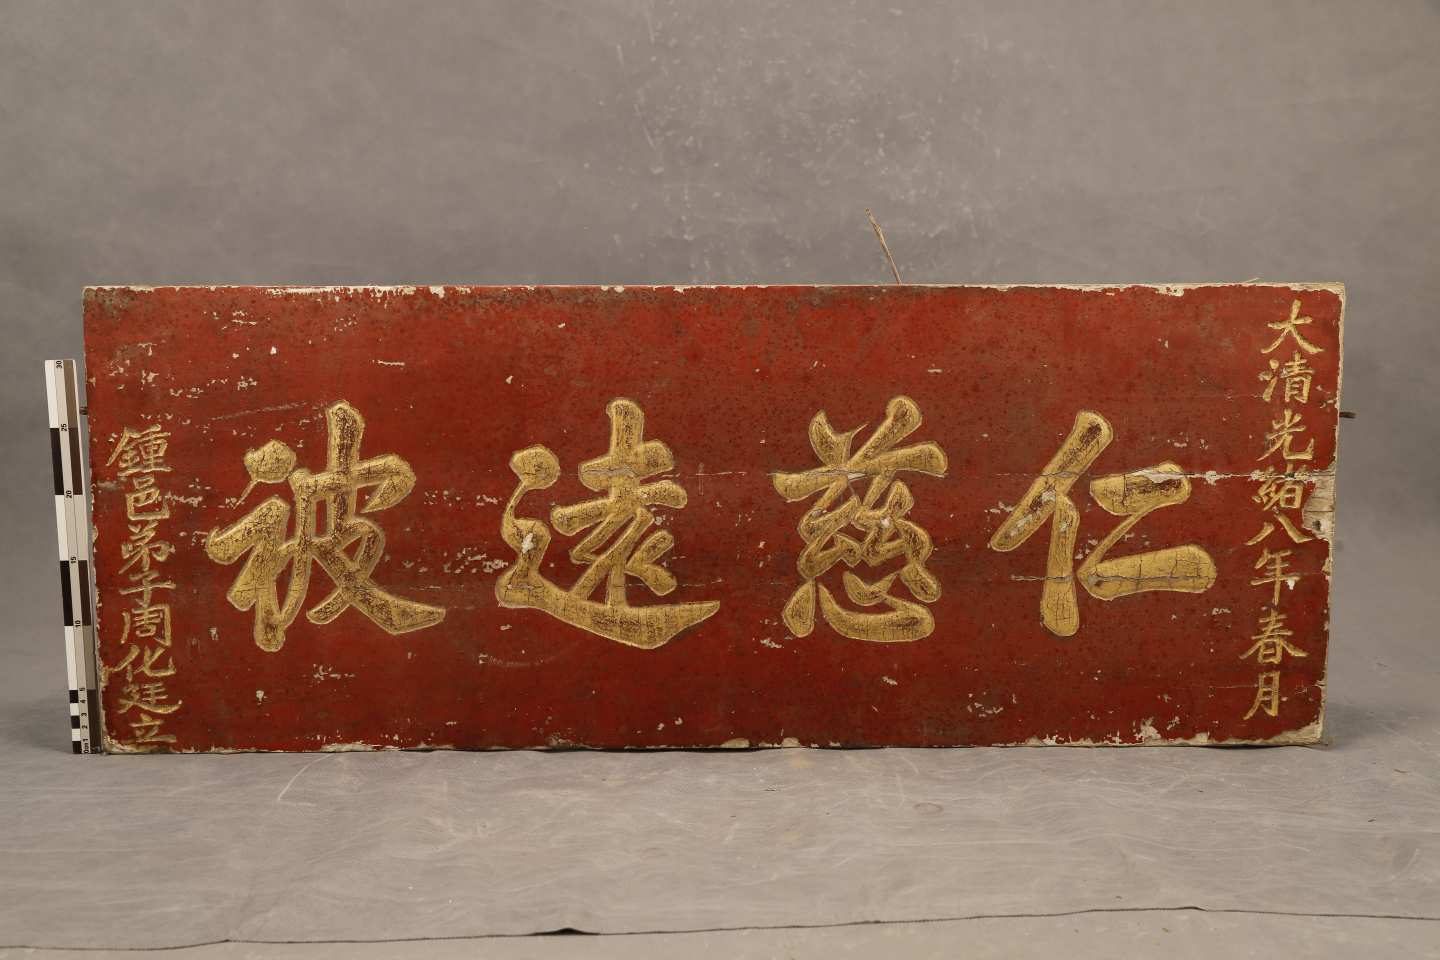 大清光緒八年春月
仁慈遠被
鍾邑弟子周化廷立
30
25
20
15
10
5
4
3
2
1